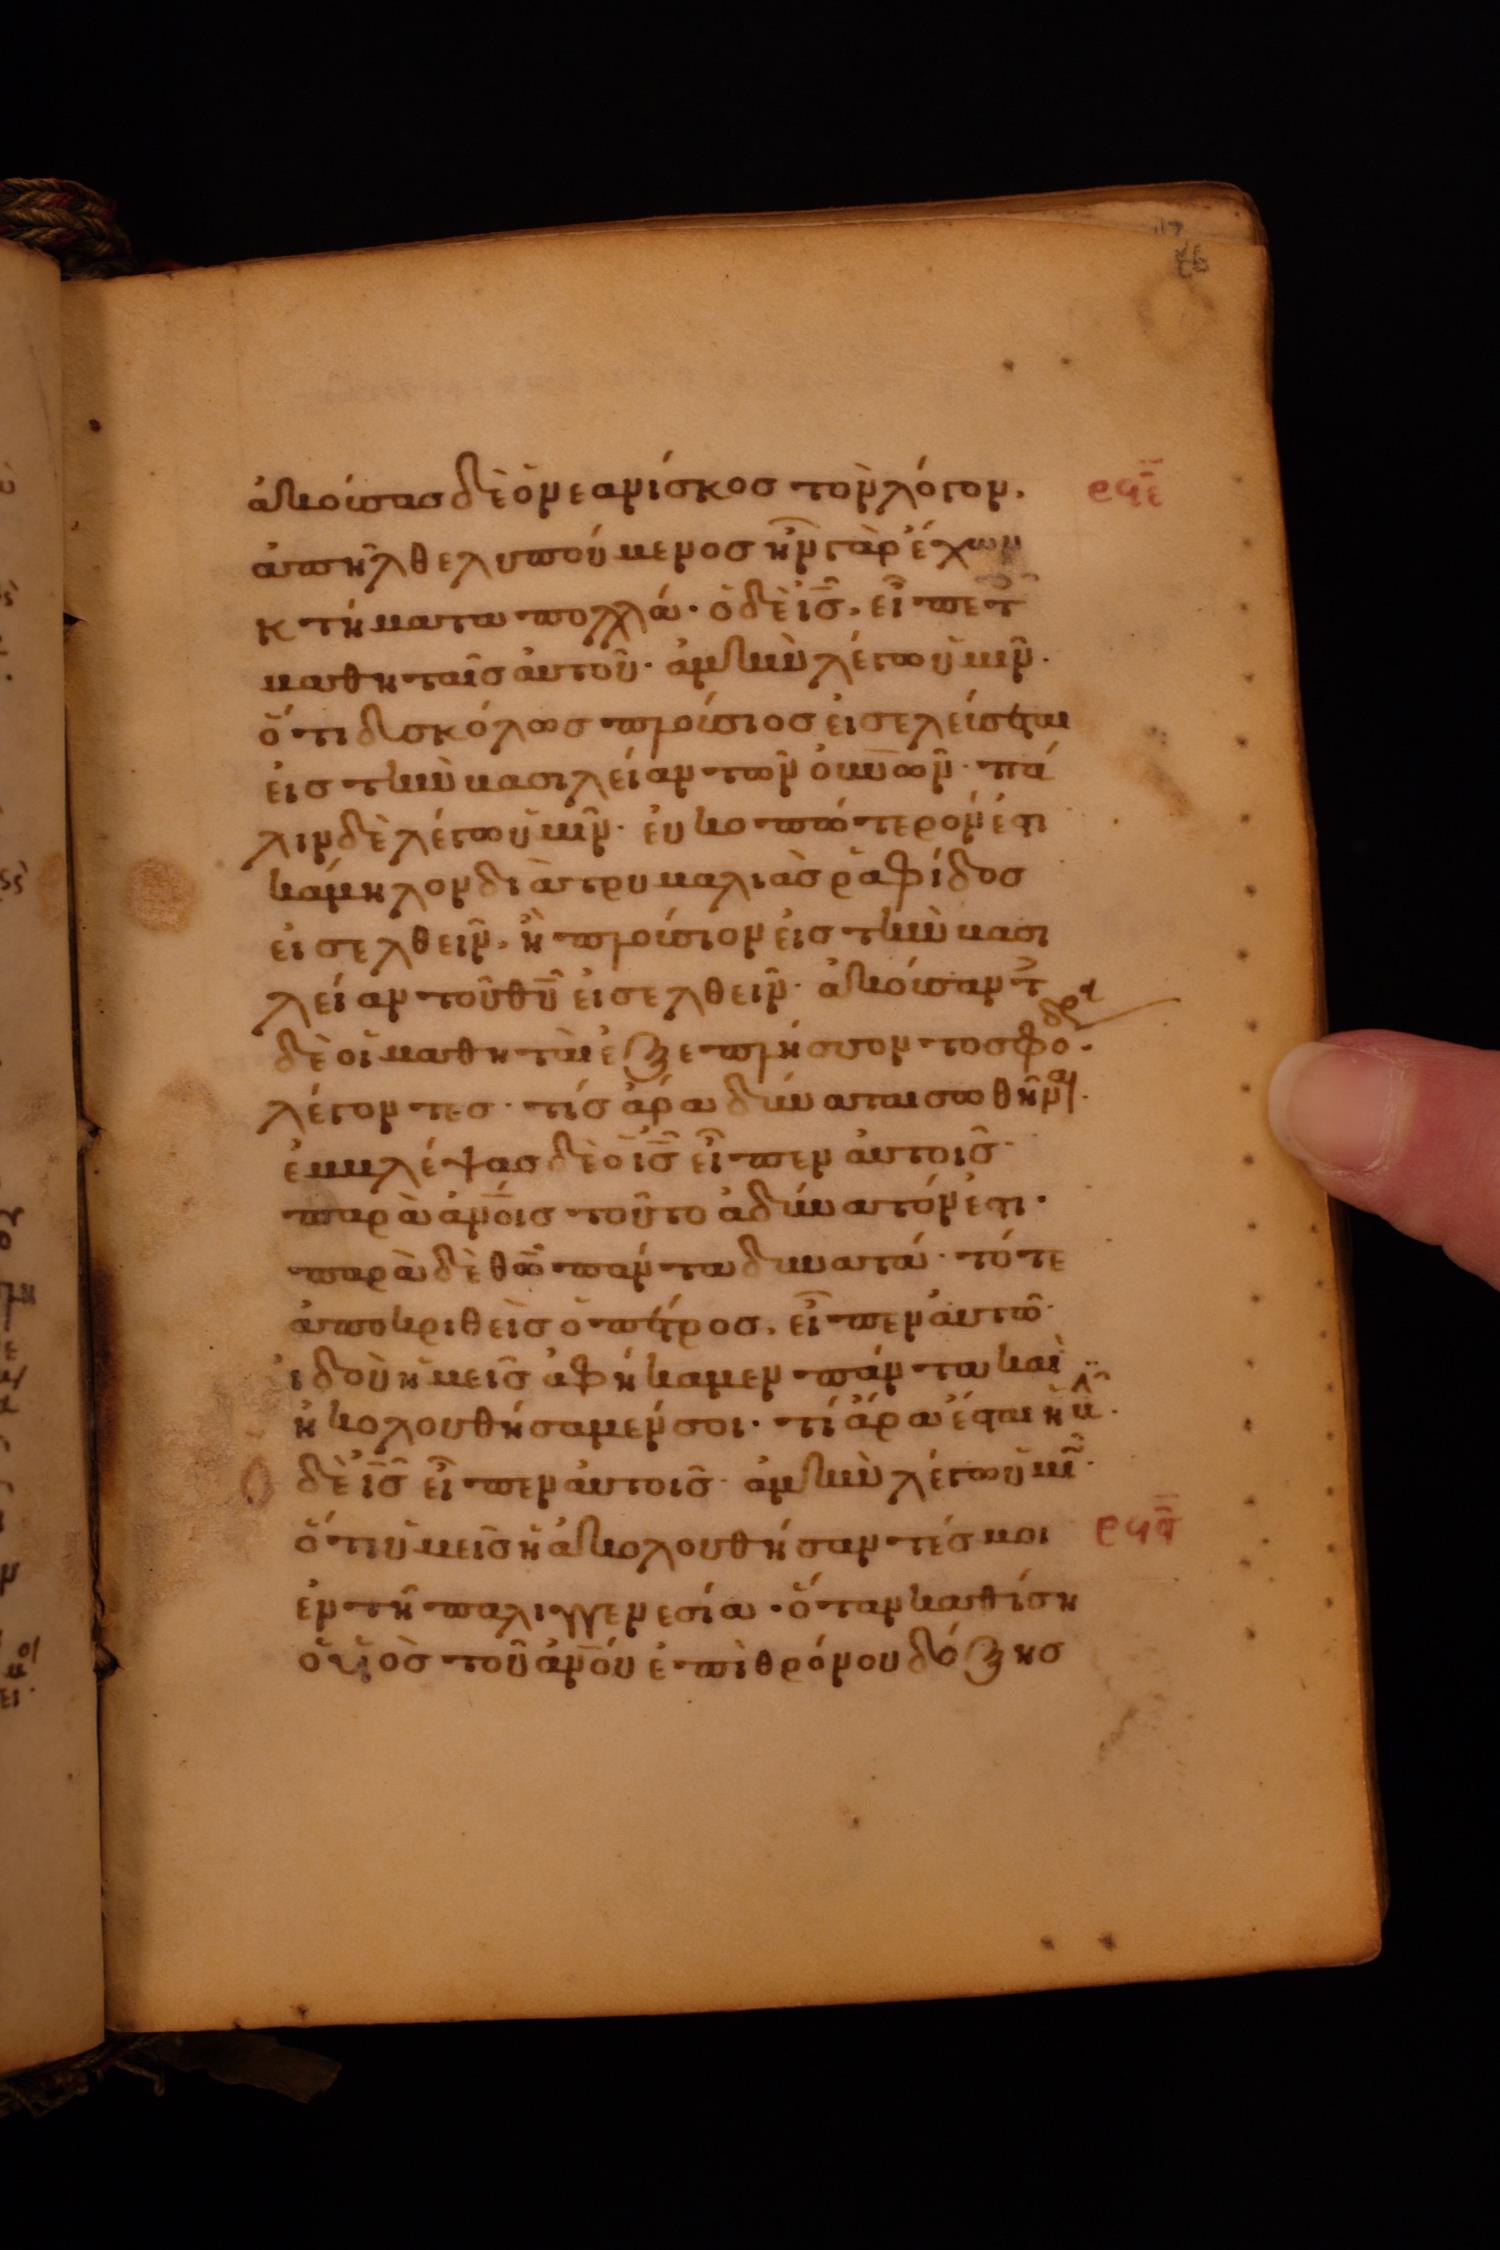 ἀκούσας δὲ ὁ νεανίσκος τὸν λόγον, ρϟε
ἀπῆλθε λυπούμενος ἦν γὰρ ἔχων
κτήματα πολλά· ὁ δὲ ἰς̅, εἶπε τ̑
μαθηταῖς ἀυτοῦ· ἀμὴν λέγω ὑμῖν·
ὅτι δισκόλως πλούσιος ἐισελεύσεται
ἐις τὴν βασιλείαν τῶν ὀυν̅ῶν· πά
λιν δὲ λέγω ὑμῖν· ἐυκοπώτερον ἐστι
κάμηλον διὰ τρυμαλιὰς ῥαφίδος
ἐισελθεῖν, ἢ πλούσιον ἐις τὴν βασι
λείαν τοῦ θυ̅ ἐισελθεῖν· ἀκούσαντ
δὲ οἱ μαθηταὶ ἐξεπλήσσοντο σφοδρα·
λέγοντες· τίς ἄρα δύναται σωθῆναι·
ἐμβλέψας δὲ ὁ ἰς̅ εἶπεν ἀυτοῖς·
παρὰ ἀνο̅ις τοῦτο ἀδύνατόν ἐστι·
παρὰ δὲ θω̅ πάντα δυνατά· τότε
ἀποκριθεὶς ὁ πέτρος, εἶπεν ἀυτῶ·
ἰδοὺ ἡμεῖς ἀφήκαμεν πάντα καὶ
ἠκολουθήσαμέν σοι· τί ἄρα ἔσται ἡμῖν·
ὁ δὲ ἰς̅ εἶπεν ἀυτοῖς· ἀμὴν λέγω ὑμῖ̅·
ὅτι ὑμεῖς ἡ ἀκολουθήσαντές μοι ρϟϛ
ἐν τῆ παλιγγενεσία· ὅταν καθίση
ὁ υἱὸς τοῦ ἀνο̅ύ ἐπὶ θρόνου δόξης